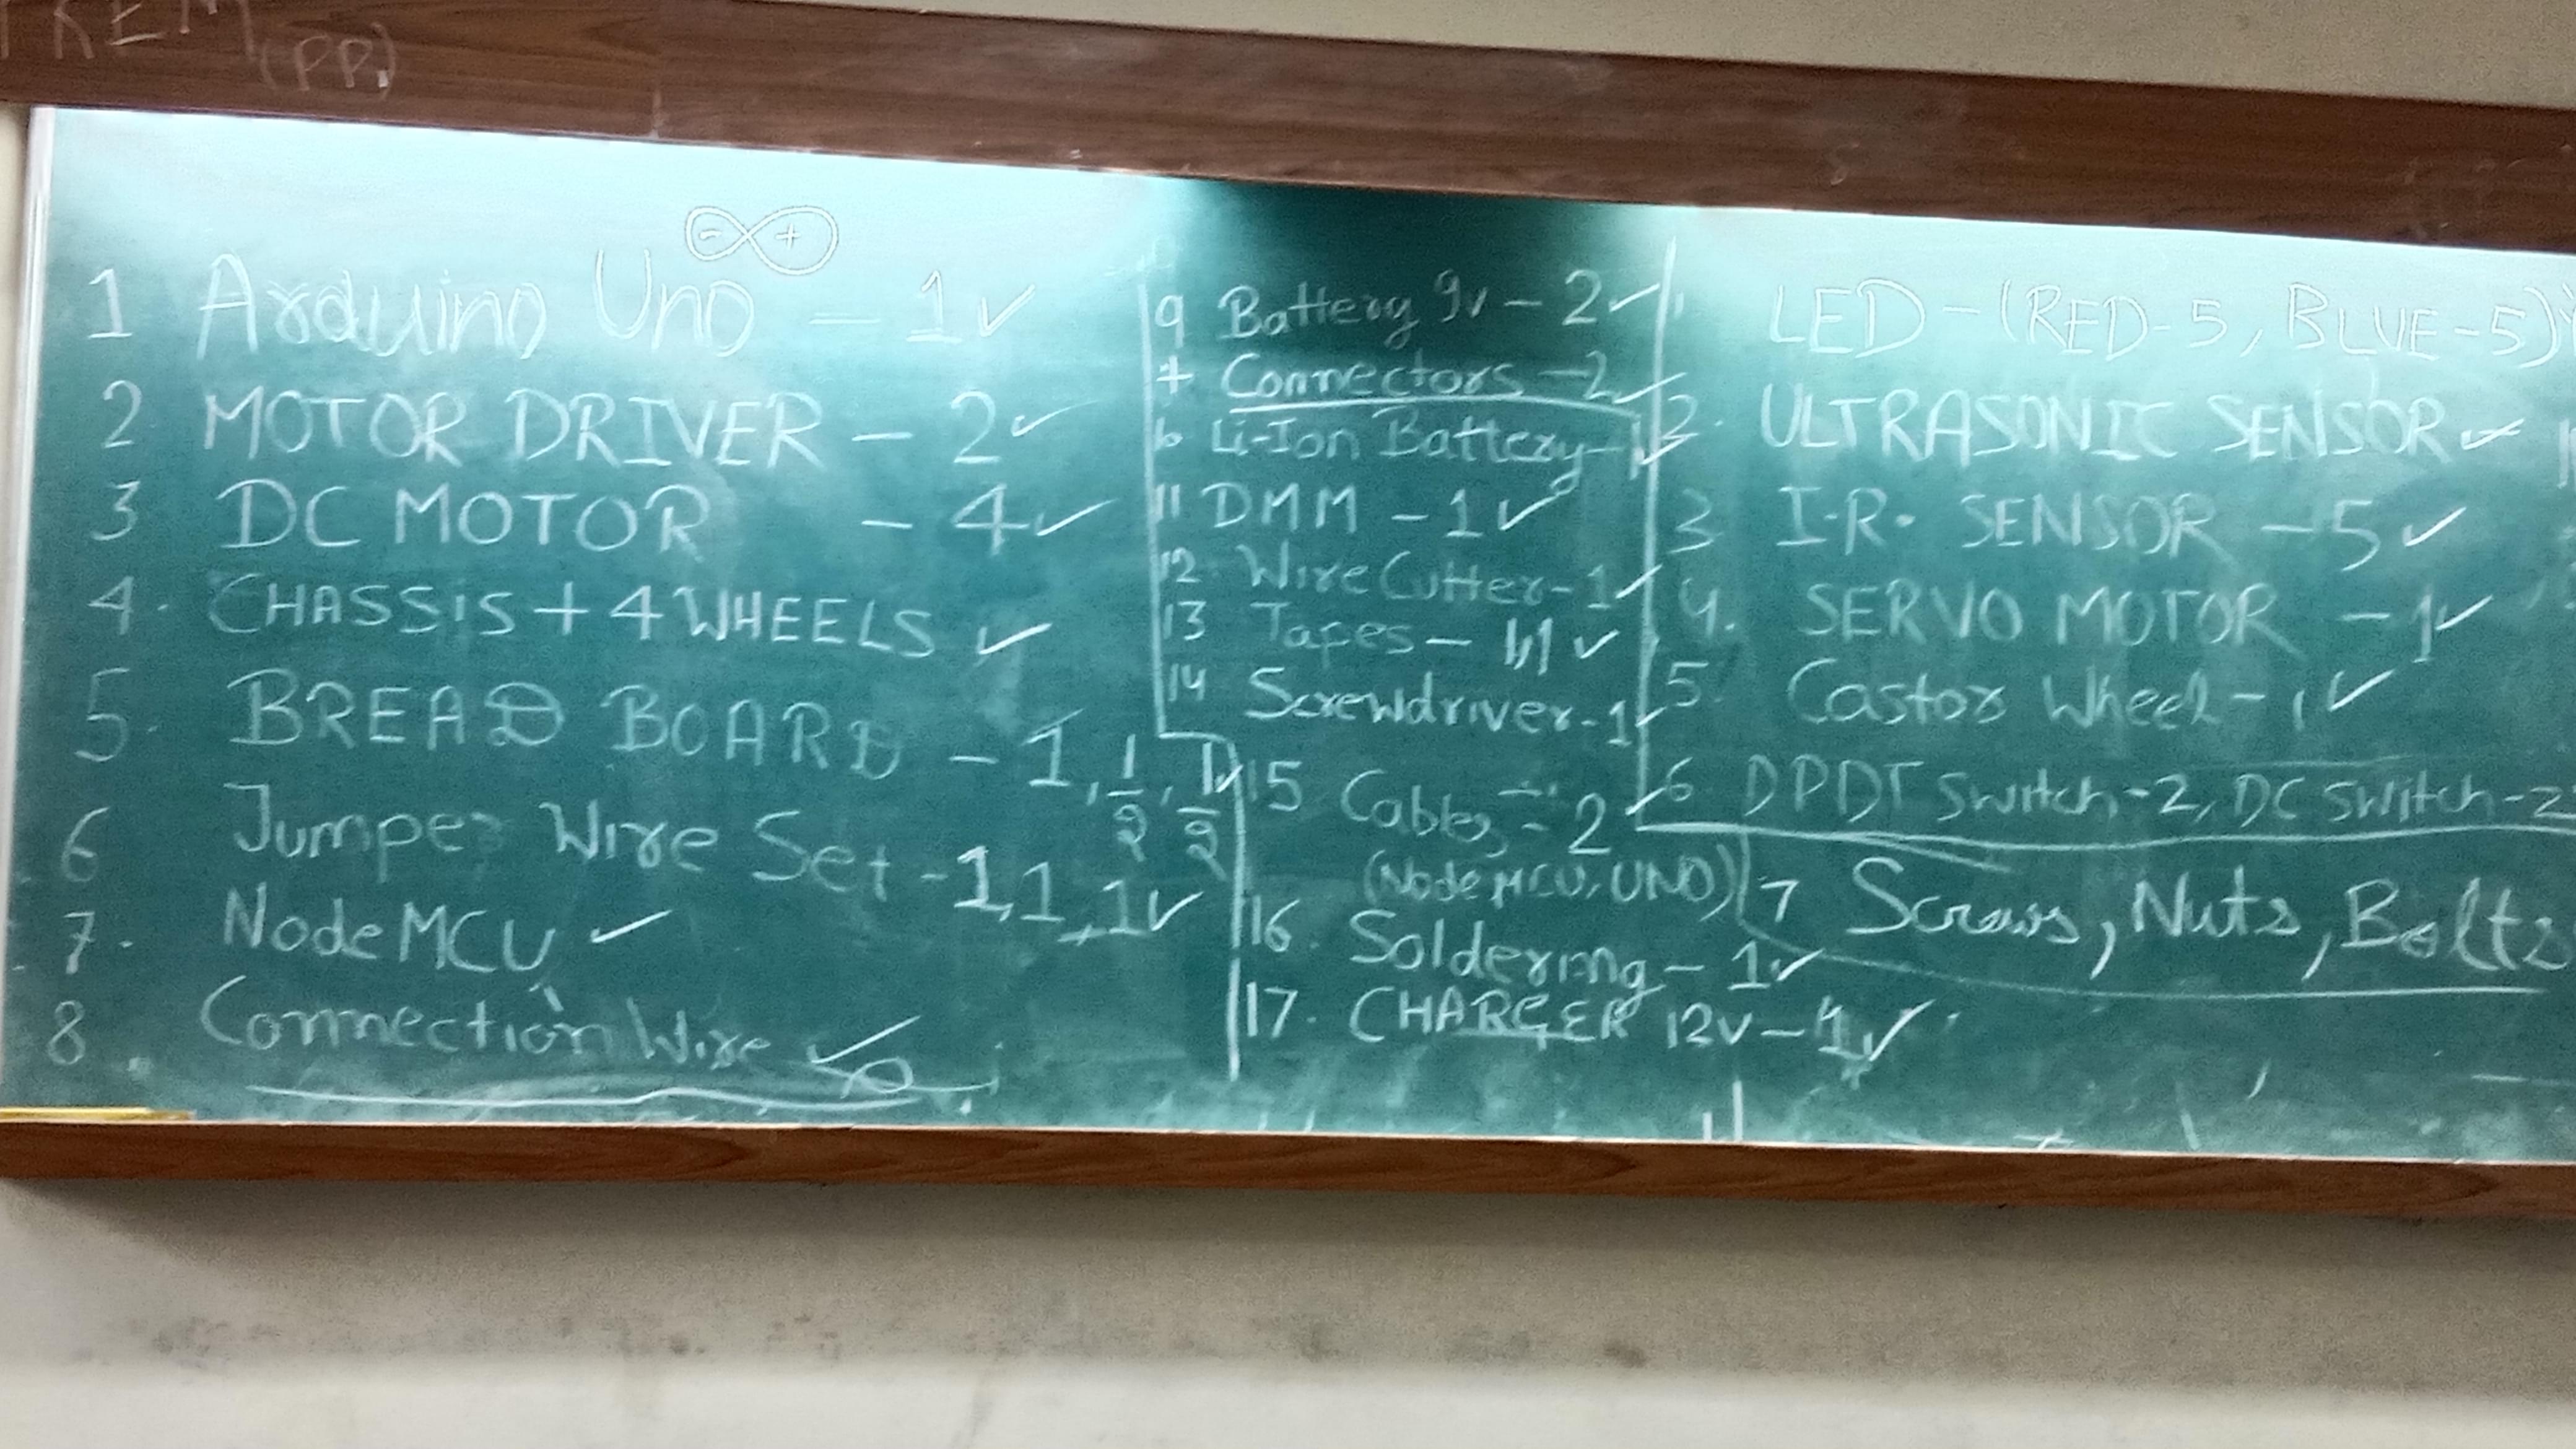 (PP.)
- +
1 Arduino Uno — 1✓
2 MOTOR DRIVER – 2✓
3 DC MOTOR – 4✓
4. CHASSIS + 4 WHEELS ✓
5. BREAD BOARD – 1, 1/2, 1/2 ✓
6 Jumper Wire Set - 1, 1, 1✓
7. NodeMCU ✓
8. Connection Wire ✓
9 Battery 9v – 2✓
+ Connectors – 2✓
Li-Ion Battery – 1✓
11 DMM – 1✓
12. Wire Cutter – 1✓
13 Tapes – ✓
14 Screwdriver - 1✓
15 Cables – 2 ✓
(NodeMCU, UNO)
16. Soldering – 1✓
17. CHARGER 12V – ✓
1 LED – (RED-5, BLUE-5)
2. ULTRASONIC SENSOR ✓
3 I.R. SENSOR – 5✓
4. SERVO MOTOR – 1✓
5. Castor Wheel – 1✓
6 DPDT Switch - 2, DC Switch - 2
7 Screws, Nuts, Bolts